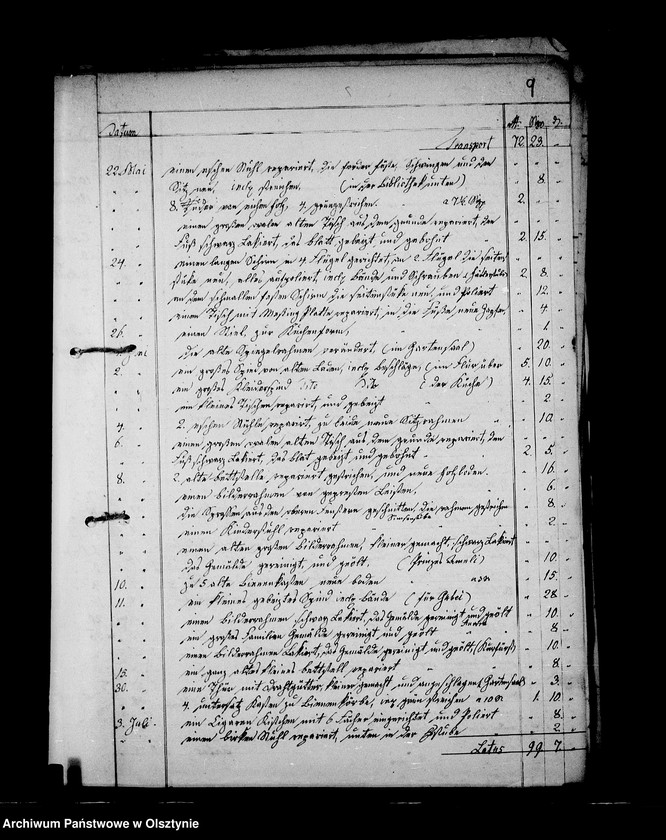 9
Datum
Transport 72. 23.
22 Mai einen eschen Stuhl repariert, die forder Füße, Schwingen und den
Sitz neu, incl. streichen. (in der Bibliothek unten) 8.
8. von eichen Holz, 4, grüngestrichen. a 7½ Sgr 2.
einen großen ovalen alten Tisch aus dem Grunde repariert, den
Fuß schwarz Lakiert, das blatt gebeizt und gebohnt 2. 15.
24. einen langen Schirm in 4 Flügel gerichtet, an 2 Flügel die seiten
stüke neu, alles aufpoliert, incl. bände und Schrauben 2. 8.
an dem schmallen Schirm die seitenstüke neu, und Poliert 12.
einen Tisch mit Messing Platte repariert, in die Füße neue 4
26. einen Stiel zur Kuchenform, 1.
Juni die alte Spiegelrahmen verändert, (im Gartensaal) 20.
2. ein großes Spind von alten Laden, incl. beschläge, (im Flur über 5. 10.
ein großes Kleiderspind dito dito (der Küche) 4. 15.
ein kleines Tischchen repariert, und gebeizt 2
4. 2. eschen Stühle repariert, zu beide neue Sitzrahmen 10.
6. einen großen ovalen alten Tisch aus dem grunde repariert, den
Fuß schwarz Lakiert, das blat gebeizt und gebohnt 2. 5.
8. 2. alte bettstelle repariert gestrichen, und neue 16.
einen bilderrahmen von gepresten Leisten, 6.
die Sprossen aus den obern Fenstern geschnitten, die rahmen gestrichen 8.
einen Kinderstuhl repariert 2.
einen alten großen bilderrahmen, kleiner gemacht, schwarz Lakiert
das Gemälde gereinigt, und geölt. (Prinzes Ameli) 10.
10. zu 5 alte bienenkasten neue boden a 3 15.
11. ein kleines gebeiztes Spind incl. bände (für Gabel) 28
einen bilderrahmen schwarz Lakiert, das Gemälde gereinigt und geölt 10.
ein großes Familien Gemälde gereinigt, und geölt 8
einen bilderrahmen Lakiert, das Gemälde gereinigt und geölt, (Kurfürst) 10.
ein ganz altes kleines bettstell repariert 8.
15.
30. eine Thür mit Drahtgitter, kleiner gemacht, und angeschlagen (Gartensaal) 3.
4. untersatz Kasten zu Bienenkörbe, grün streichen a 10 1. 10.
3. Juli ein Cigaren Kistchen mit 6 Fächer eingerichtet, und Poliert 8.
einen birken Stuhl repariert, unten in der 2.
Latus 99 7.
Archiwum Państwowe w Olsztynie